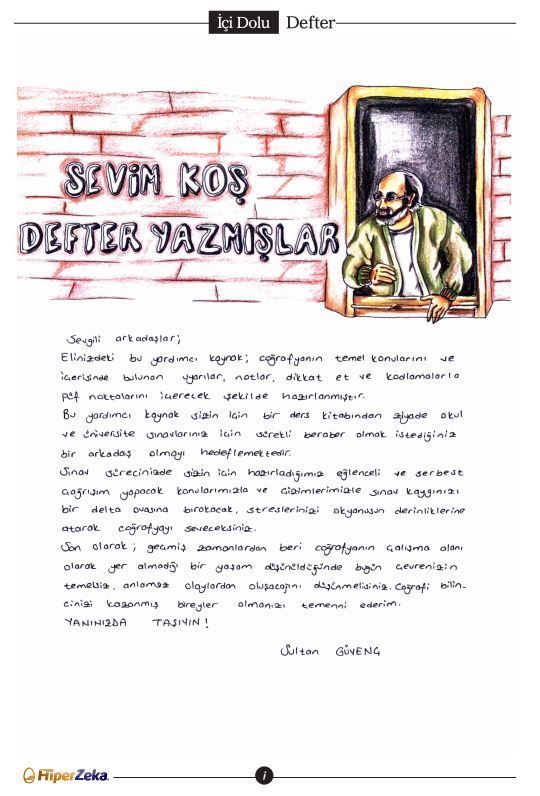 İçi Dolu Defter
SEVİM KOŞ
DEFTER YAZMIŞLAR
Sevgili arkadaşlar;
Elinizdeki bu yardımcı kaynak; coğrafyanın temel konularını ve
içerisinde bulunan uyarılar, notlar, dikkat et ve kodlamalarla
püf noktalarını içerecek şekilde hazırlanmıştır.
Bu yardımcı kaynak sizin için bir ders kitabından ziyade okul
ve üniversite sınavlarınız için sürekli beraber olmak istediğiniz
bir arkadaş olmayı hedeflemektedir.
Sınav sürecinizde sizin için hazırladığımız eğlenceli ve serbest
çağrışım yapacak konularımızla ve çizimlerimizle sınav kaygınızı
bir delta ovasına bırakacak, streslerinizi okyanusun derinliklerine
atarak coğrafyayı seveceksiniz.
Son olarak; geçmiş zamanlardan beri coğrafyanın çalışma alanı
olarak yer almadığı bir yaşam düşünüldüğünde bugün çevrenizin
temelsiz, anlamsız olaylardan oluşacağını düşünmelisiniz. Coğrafi bilin-
cinizi kazanmış bireyler olmanızı temenni ederim.
YANINIZDA TAŞIYIN!
Sultan GÜVENÇ
HiperZeka
i